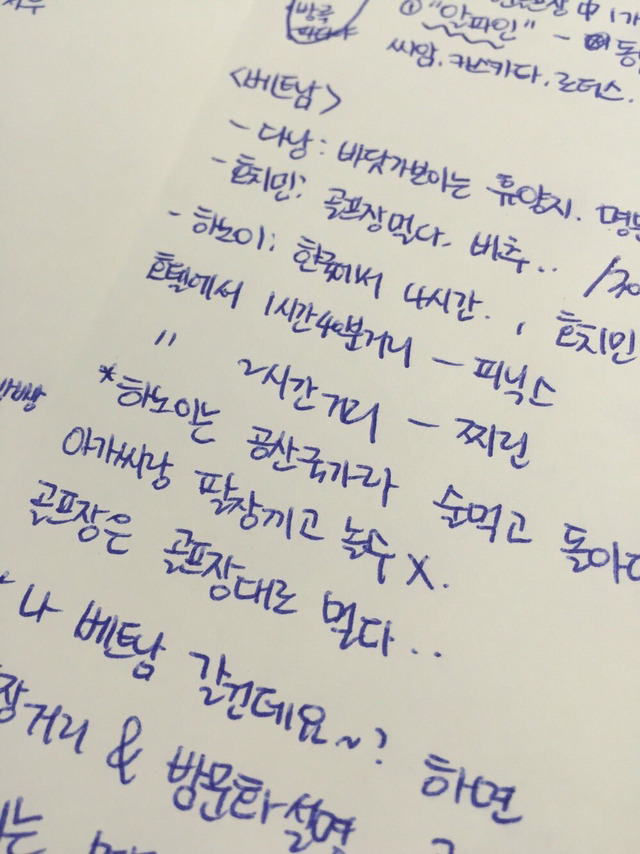 방콕
① "알파인" - 동
씨암. 카스카다. 로터스.
<베트남>
- 다낭: 바닷가보이는 휴양지. 명문
- 호치민: 골프장멀다. 비추..
- 하노이: 한국에서 4시간. , 호치민
호텔에서 1시간40분거리 - 피닉스
" 2시간거리 - 찌린
*하노이는 공산국가라 술먹고 돌아다
아가씨랑 팔장끼고 놀수 X.
골프장은 골프장대로 멀다..
나 베트남 갈건데요~? 하면
장거리 & 방문타 설명